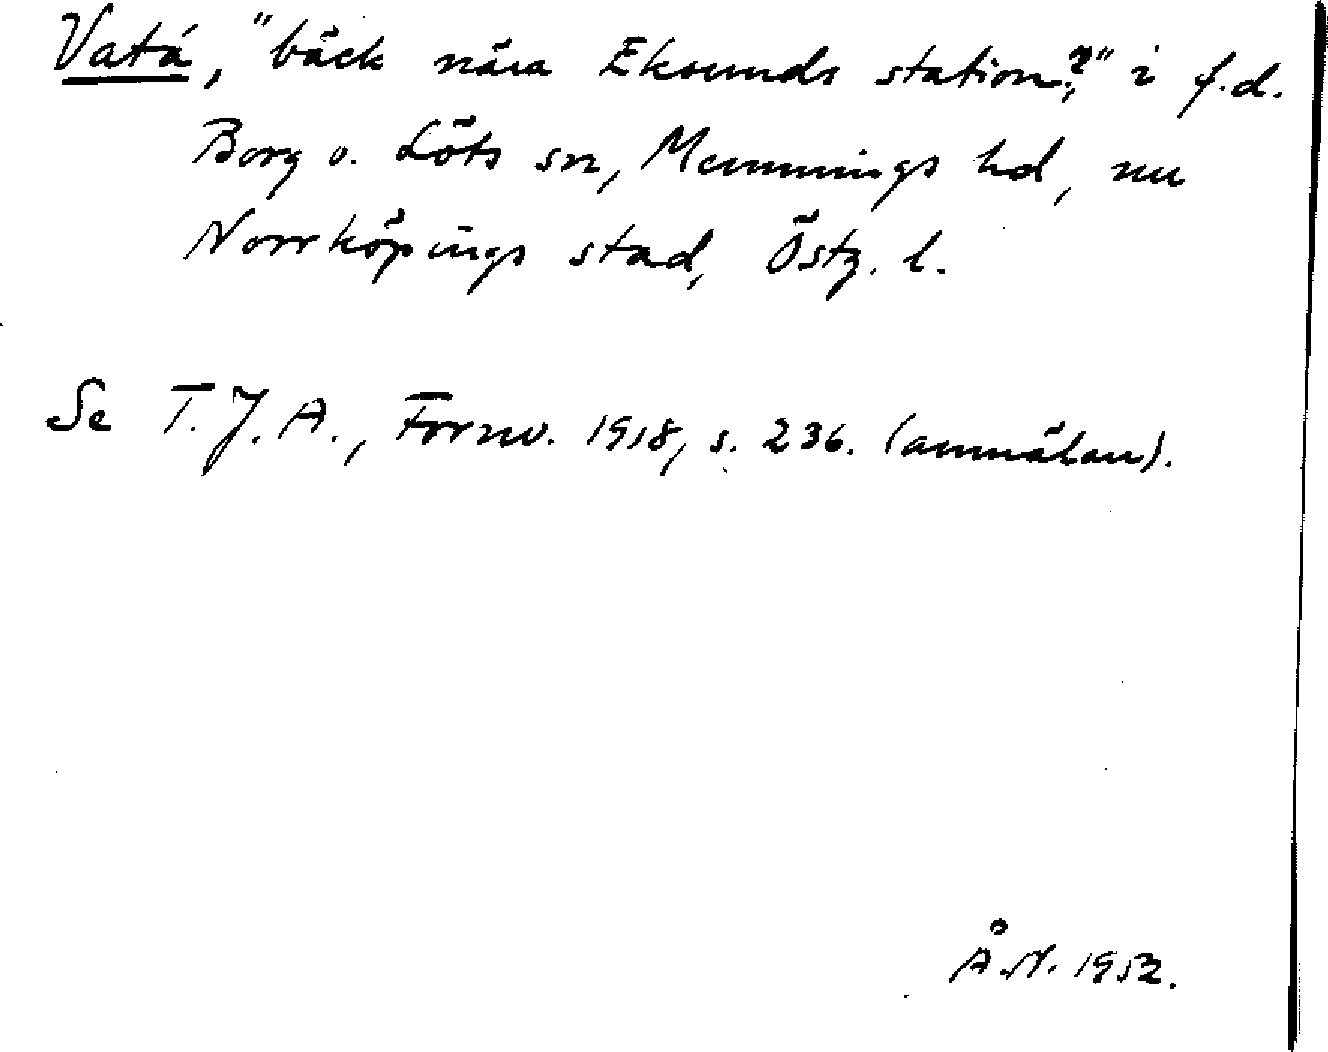 Vatá, "bäck nära Eksunds station?," i f.d.
Borg o. Löts sn, Memmings hd, nu
Norrköpings stad, Östg. l.
Se T.J.A., Fornv. 1918, s. 236. (anmälan).
Å.N. 1952.